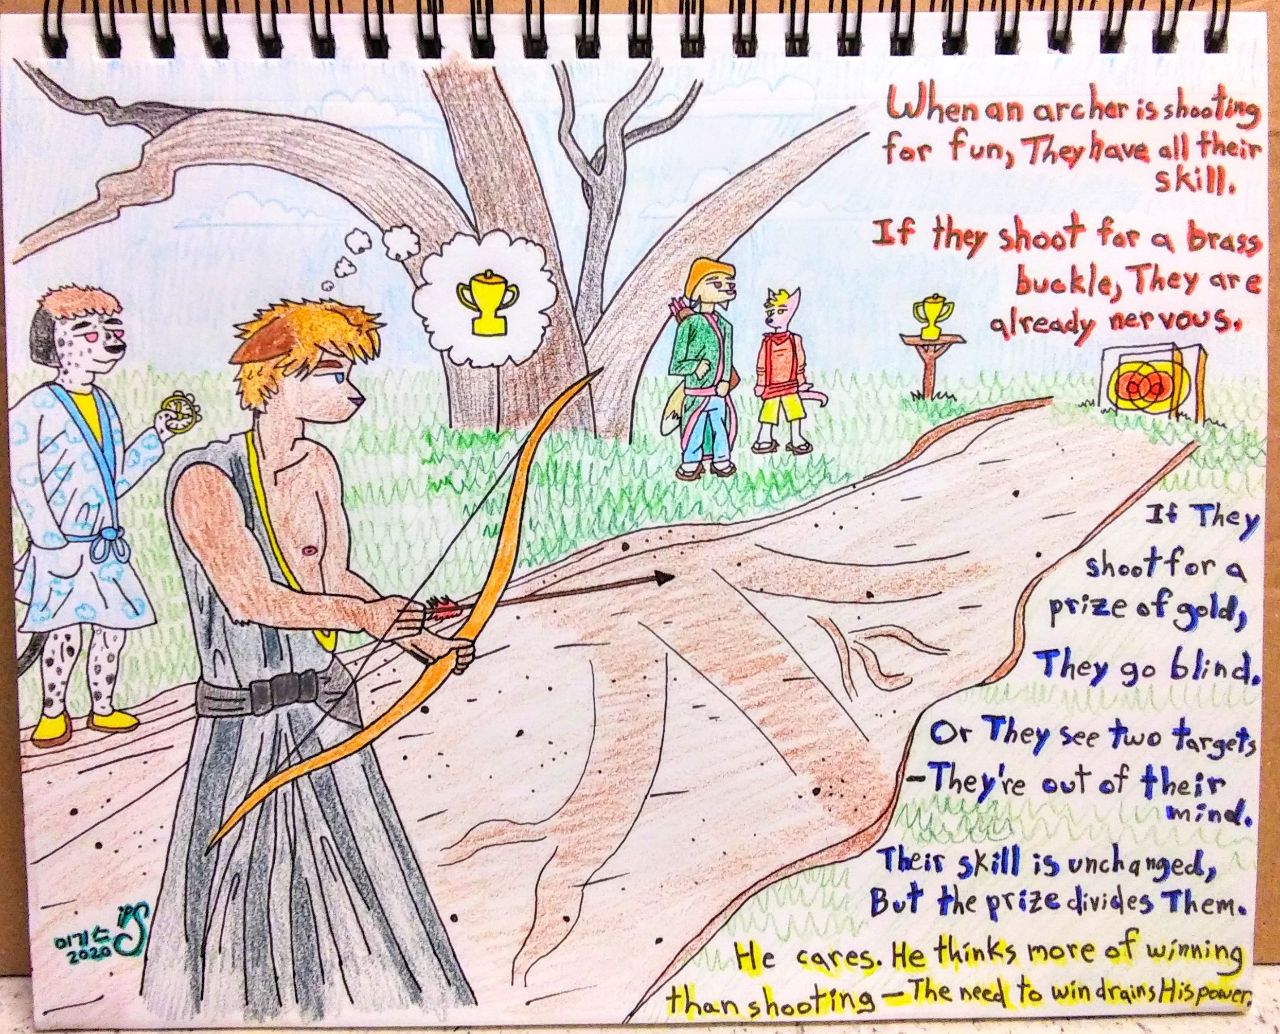 When an archer is shooting
for fun, They have all their
skill.
If they shoot for a brass
buckle, They are
already nervous.
If They
shoot for a
prize of gold,
They go blind.
Or They see two targets
—They're out of their
mind.
Their skill is unchanged,
But the prize divides Them.
He cares. He thinks more of winning
than shooting — The need to win drains His power.
미기스
2020